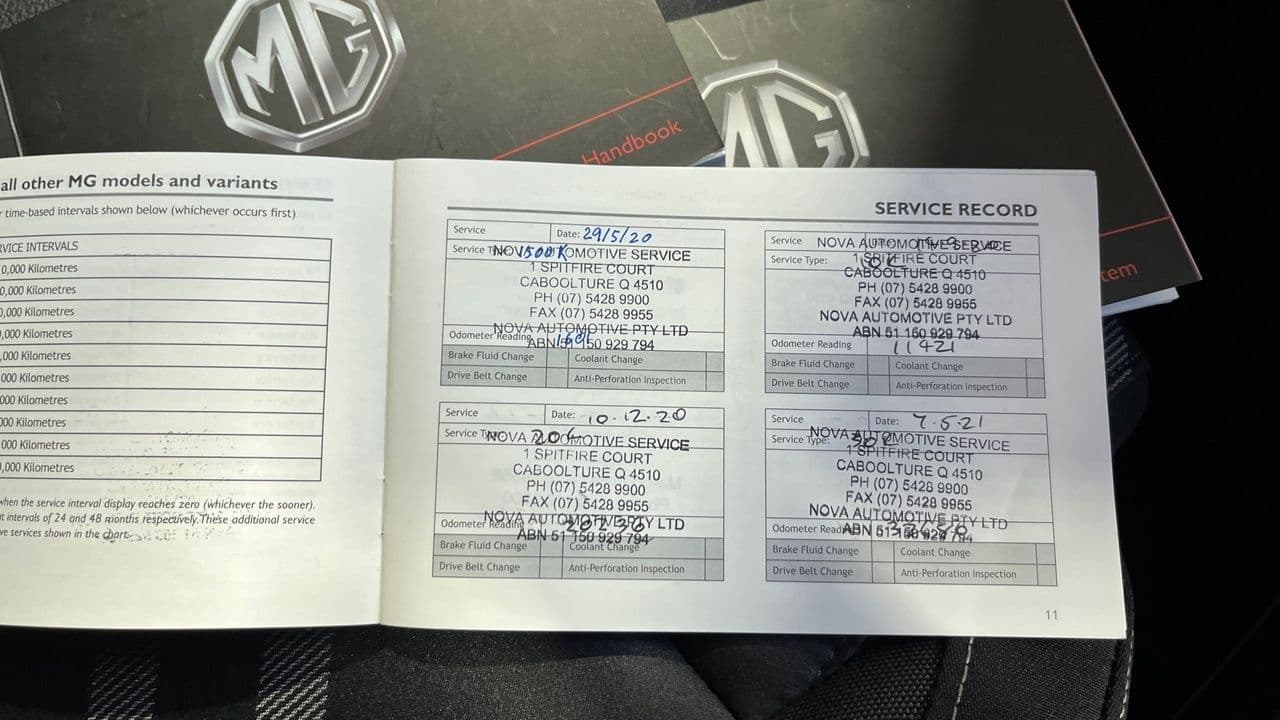 MG
Handbook
MG
tem
all other MG models and variants
time-based intervals shown below (whichever occurs first)
VICE INTERVALS
0,000 Kilometres
0,000 Kilometres
0,000 Kilometres
,000 Kilometres
,000 Kilometres
000 Kilometres
000 Kilometres
000 Kilometres
000 Kilometres
,000 Kilometres
when the service interval display reaches zero (whichever the sooner).
at intervals of 24 and 48 months respectively. These additional service
ve services shown in the chart.
SERVICE RECORD
Service
Date: 29/5/20
Service Type: 1500K
NOVA AUTOMOTIVE SERVICE
1 SPITFIRE COURT
CABOOLTURE Q 4510
PH (07) 5428 9900
FAX (07) 5428 9955
NOVA AUTOMOTIVE PTY LTD
ABN 51 150 929 794
Odometer Reading
Brake Fluid Change
Coolant Change
Drive Belt Change
Anti-Perforation Inspection
Service
Date:
NOVA AUTOMOTIVE SERVICE
Service Type:
1 SPITFIRE COURT
CABOOLTURE Q 4510
PH (07) 5428 9900
FAX (07) 5428 9955
NOVA AUTOMOTIVE PTY LTD
ABN 51 150 929 794
Odometer Reading 11421
Brake Fluid Change
Coolant Change
Drive Belt Change
Anti-Perforation Inspection
Service
Date: 10.12.20
Service Type: 20K
NOVA AUTOMOTIVE SERVICE
1 SPITFIRE COURT
CABOOLTURE Q 4510
PH (07) 5428 9900
FAX (07) 5428 9955
NOVA AUTOMOTIVE PTY LTD
Odometer Reading
ABN 51 150 929 794
Brake Fluid Change
Coolant Change
Drive Belt Change
Anti-Perforation Inspection
Service
Date: 7.5.21
NOVA AUTOMOTIVE SERVICE
Service Type: 30K
1 SPITFIRE COURT
CABOOLTURE Q 4510
PH (07) 5428 9900
FAX (07) 5428 9955
NOVA AUTOMOTIVE PTY LTD
Odometer Reading
ABN 51 150 929 794
Brake Fluid Change
Coolant Change
Drive Belt Change
Anti-Perforation Inspection
11